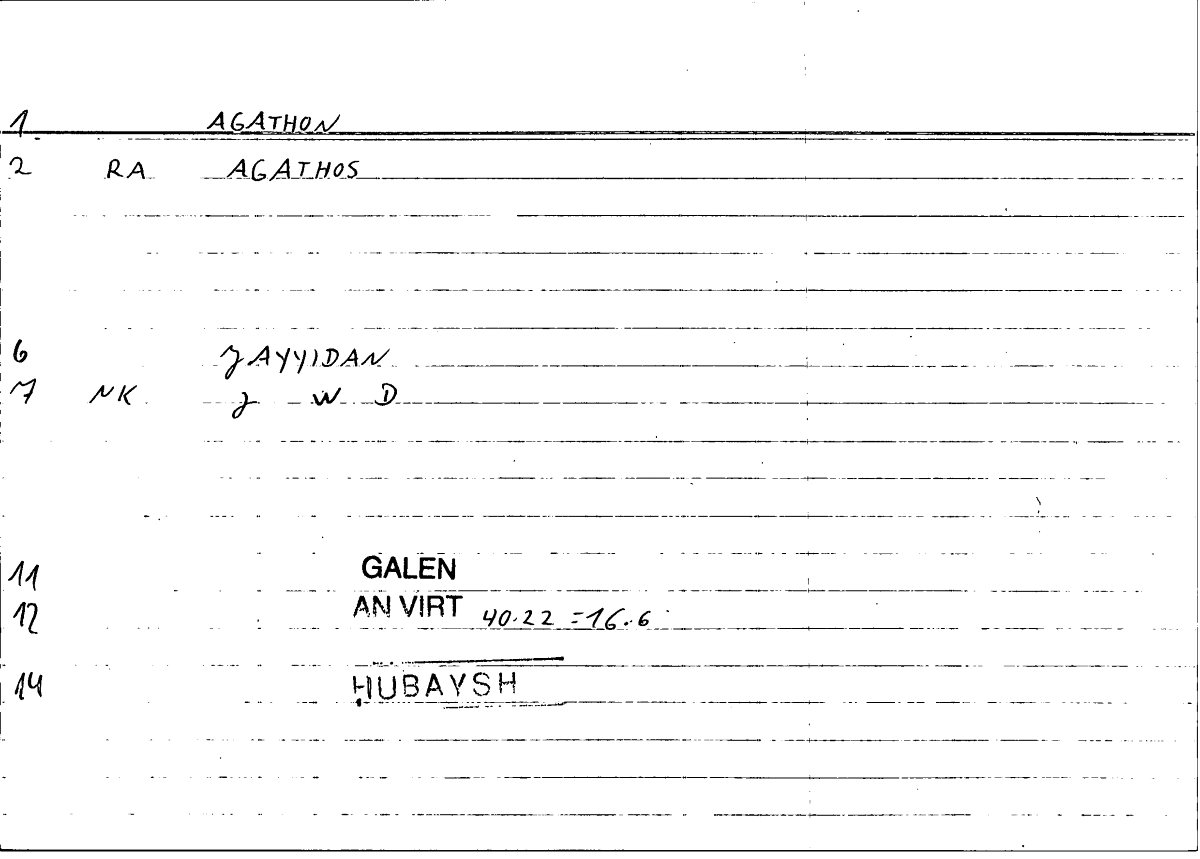 1 AGATHON
2 RA AGATHOS
6 JAYYIDAN
7 NK J W D
11 GALEN
12 AN VIRT 40.22 = 16.6
14 ḤUBAYSH